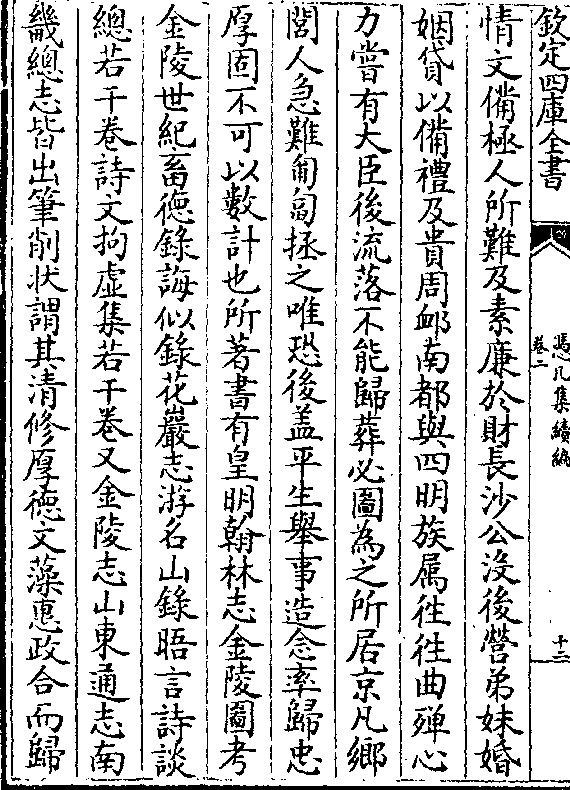 欽定四庫全書
憑几集續編
卷二
十二
情文備極人所難及素廉於財長沙公沒後營弟妹婚
姻貸以備禮及貴周卹南都與四明族屬徃徃曲殫心
力嘗有大臣後流落不能歸葬必圖為之所居京凡鄉
閭人急難匍匐拯之唯恐後盖平生舉事造念率歸忠
厚固不可以數計也所著書有皇明翰林志金陵圖考
金陵世紀畜徳錄誨似錄花巖志游名山錄晤言詩談
總若干卷詩文拘虛集若干卷又金陵志山東通志南
畿總志皆出筆削状謂其清修厚徳文藻惠政合而歸